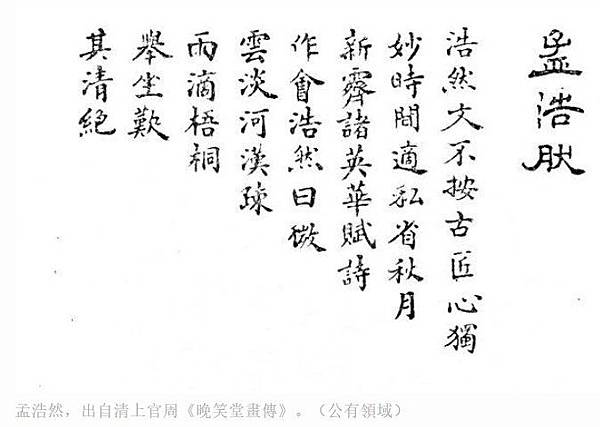 孟浩肰
浩然文不按古匠心獨
妙時間適私省秋月
新霽諸英華賦詩
作會浩然曰微
雲淡河漢疎
雨滴梧桐
舉坐歎
其清絕
孟浩然,出自清上官周《晚笑堂畫傳》。(公有領域)